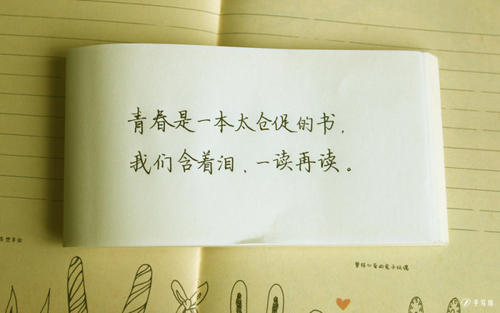 青春是一本太仓促的书，
我们含着泪、一读再读。
手写馆